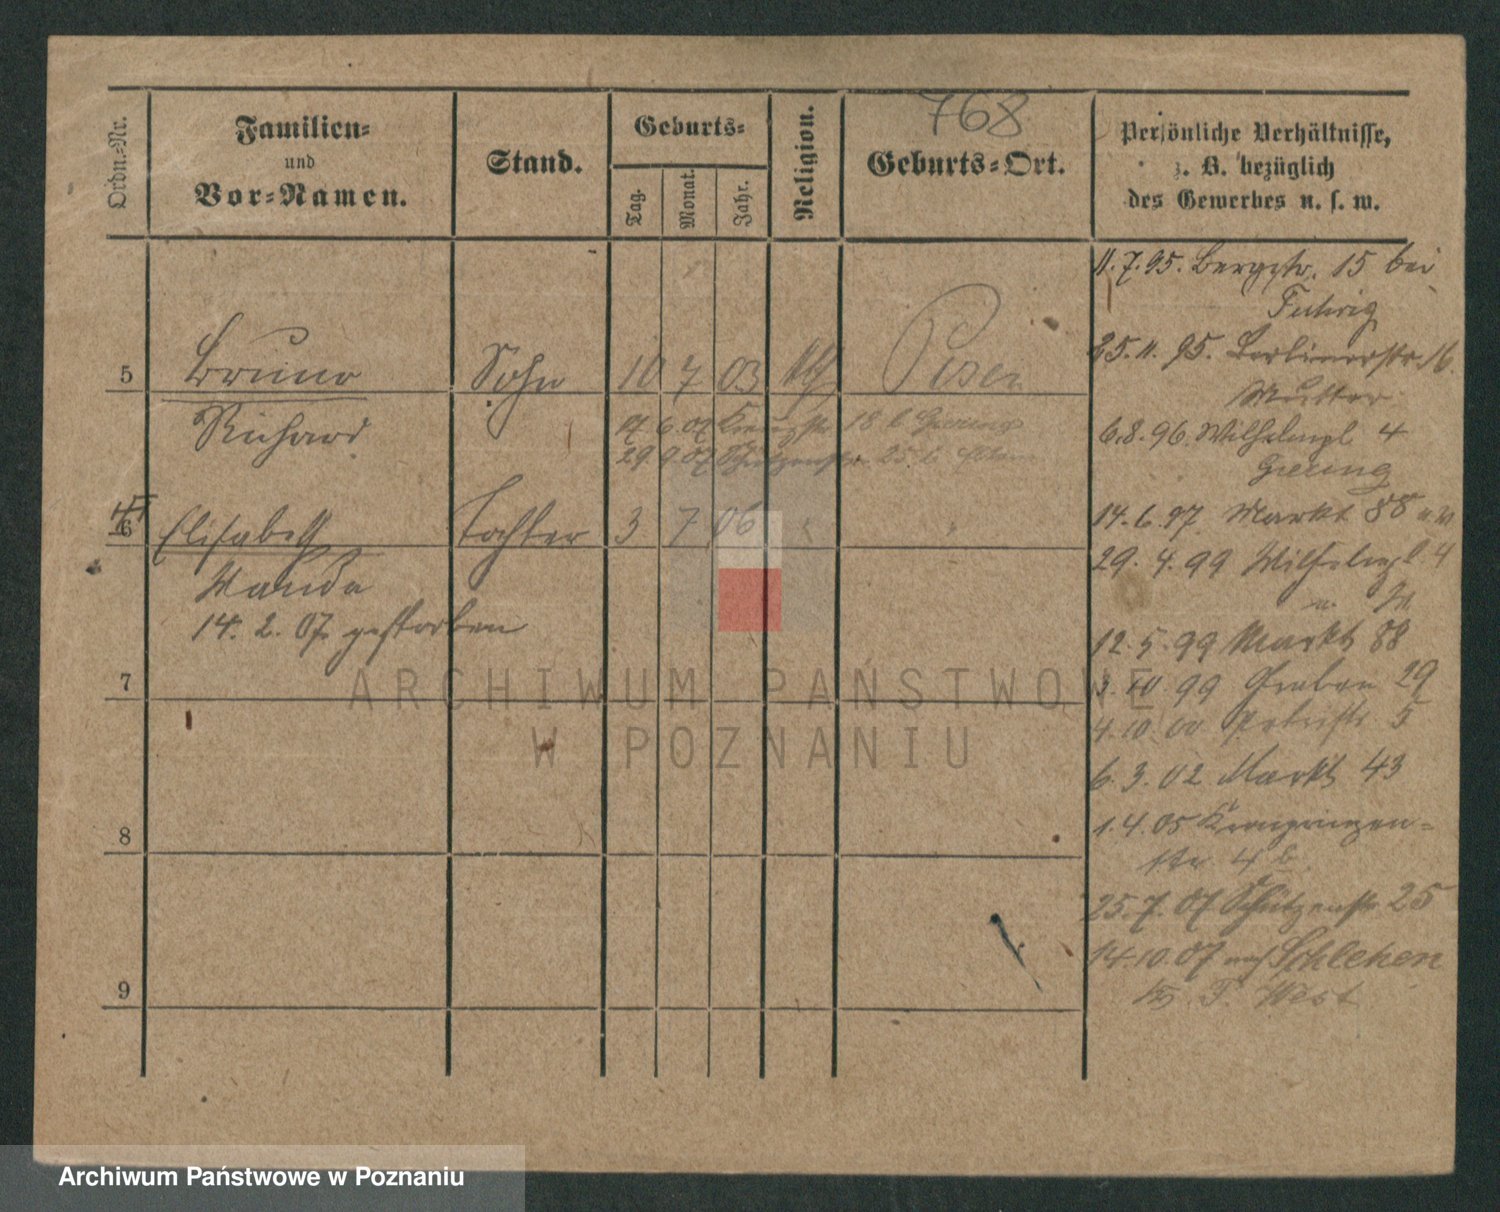 768
Ordn.-Nr.
Familien-
und
Vor-Namen.
Stand.
Geburts-
Tag.
Monat.
Jahr.
Religion.
Geburts-Ort.
Persönliche Verhältnisse,
z. B. bezüglich
des Gewerbes u. s. w.
5 Bruno Sohn 10 7 03 Posen
Richard
17 6 07 18 b Giering
29 9 07 Schützenstr. 25 b
6 Elisabeth Tochter 3 7 06 "
Wanda
14. 2. 07 gestorben
7
8
9
11. 7. 95. Bergstr. 15 bei
25. 11. 95. Berlinerstr. 16.
Mutter
6. 8. 96. Wilhelmpl 4
Giering
14. 6. 97 Markt 88
29. 4. 99 Wilhelmpl 4
12. 5. 99 Markt 88
3. 10. 99 Graben 29
4. 10. 00 Petristr. 5
6. 3. 02 Markt 43
1. 4. 05 Kronprinzen-
str. 4 b
25. 7. 07 Schützenstr 25
14. 10. 07 nach Schlehen
Kr. P. West
ARCHIWUM PAŃSTWOWE
W POZNANIU
Archiwum Państwowe w Poznaniu